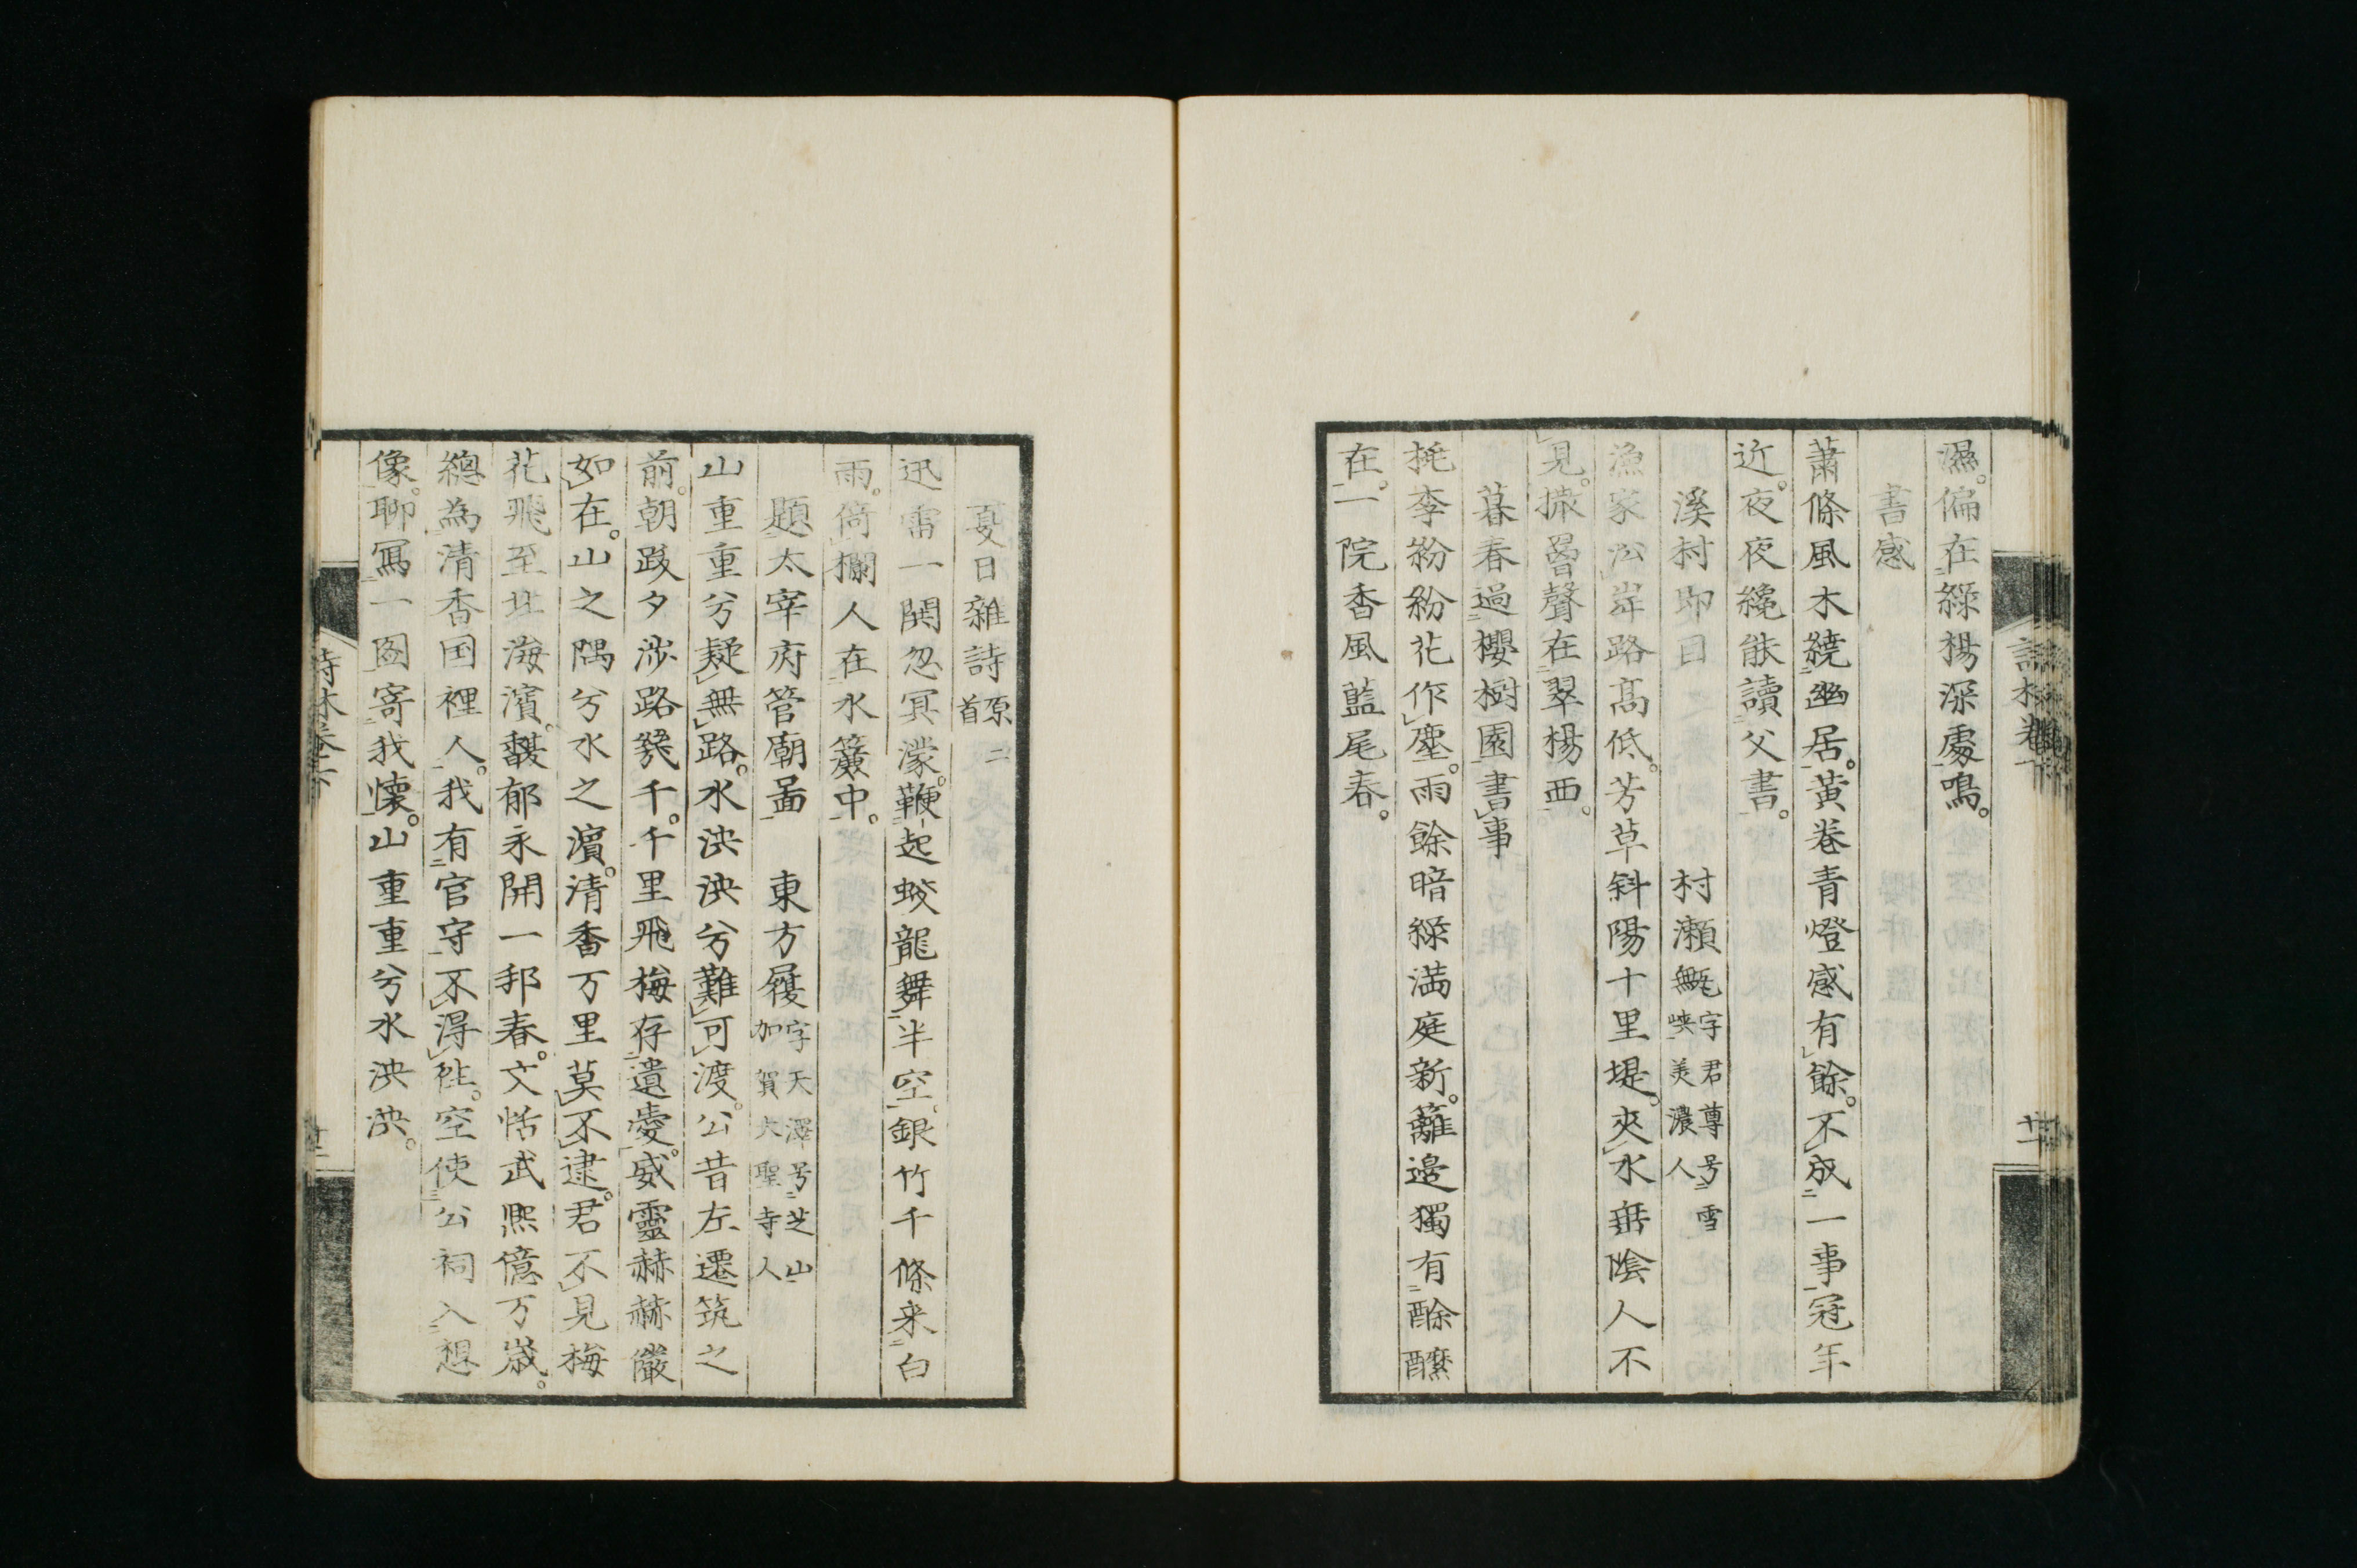 濕。偏在綠楊深處鳴。
書感
蕭條風木繞幽居。黃卷青燈感有餘。不成一事冠年
近。夜夜纔能讀父書。
溪村即目 村瀬 字君尊号雪峽美濃人
漁家沿岸路高低。芳草斜陽十里堤。夾水垂陰人不
見。搽罾聲在翠楊西。
暮春過櫻樹園書事
桃李粉紛花作塵。雨餘暗綠満庭新。籬邊獨有酴醿
在。一院香風藍尾春。
夏日雜詩原二首
迅雷一鬨忽冥濛。鞭起蛟龍舞半空。銀竹千條来白
雨。倚欄人在水簾中。
題太宰府管廟啚 東方履字天澤号芝山加賀大聖寺人
山重重兮疑無路。水泱泱兮難可渡。公昔左遷筑之
前。朝跋夕渉路幾千。千里飛梅存遺愛。威靈赫赫儼
如在。山之隅兮水之濱。清香万里莫不逮。君不見梅
花飛至北海濱。馥郁永開一邦春。文恬武熈億万歳。
總為清香国裡人。我有官守不得徃。空使公祠入想
像。聊寫一圖寄我懐。山重重兮水泱泱。